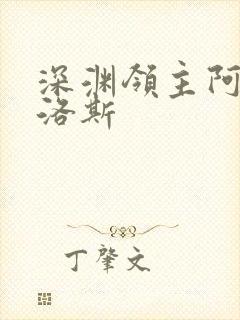 深渊领主阿
洛斯
丁肇文